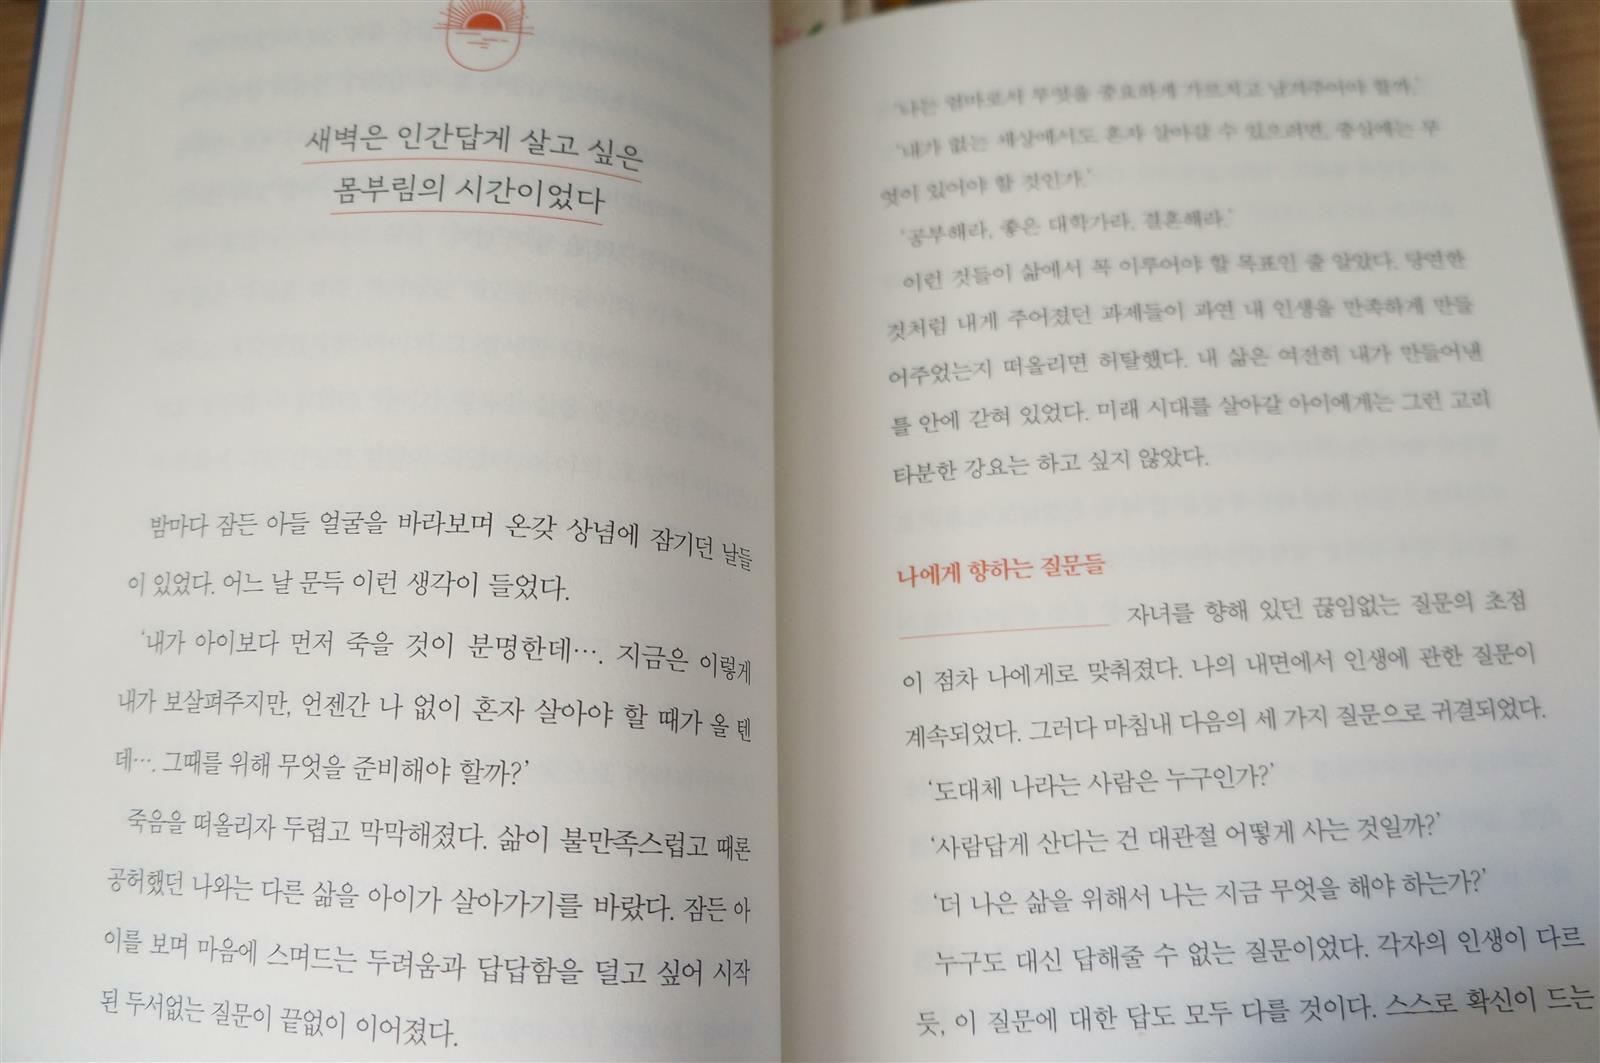 새벽은 인간답게 살고 싶은
몸부림의 시간이었다
밤마다 잠든 아들 얼굴을 바라보며 온갖 상념에 잠기던 날들
이 있었다. 어느 날 문득 이런 생각이 들었다.
‘내가 아이보다 먼저 죽을 것이 분명한데…. 지금은 이렇게
내가 보살펴주지만, 언젠간 나 없이 혼자 살아야 할 때가 올 텐
데…. 그때를 위해 무엇을 준비해야 할까?’
죽음을 떠올리자 두렵고 막막해졌다. 삶이 불만족스럽고 때론
공허했던 나와는 다른 삶을 아이가 살아가기를 바랐다. 잠든 아
이를 보며 마음에 스며드는 두려움과 답답함을 덜고 싶어 시작
된 두서없는 질문이 끝없이 이어졌다.
‘나는 엄마로서 무엇을 중요하게 가르치고 남겨주어야 할까.’
‘내가 없는 세상에서도 혼자 살아갈 수 있으려면, 중심에는 무
엇이 있어야 할 것인가.’
‘공부해라, 좋은 대학가라, 결혼해라.’
이런 것들이 삶에서 꼭 이루어야 할 목표인 줄 알았다. 당연한
것처럼 내게 주어졌던 과제들이 과연 내 인생을 만족하게 만들
어주었는지 떠올리면 허탈했다. 내 삶은 여전히 내가 만들어낸
틀 안에 갇혀 있었다. 미래 시대를 살아갈 아이에게는 그런 고리
타분한 강요는 하고 싶지 않았다.
나에게 향하는 질문들
자녀를 향해 있던 끊임없는 질문의 초점
이 점차 나에게로 맞춰졌다. 나의 내면에서 인생에 관한 질문이
계속되었다. 그러다 마침내 다음의 세 가지 질문으로 귀결되었다.
‘도대체 나라는 사람은 누구인가?’
‘사람답게 산다는 건 대관절 어떻게 사는 것일까?’
‘더 나은 삶을 위해서 나는 지금 무엇을 해야 하는가?’
누구도 대신 답해줄 수 없는 질문이었다. 각자의 인생이 다르
듯, 이 질문에 대한 답도 모두 다를 것이다. 스스로 확신이 드는